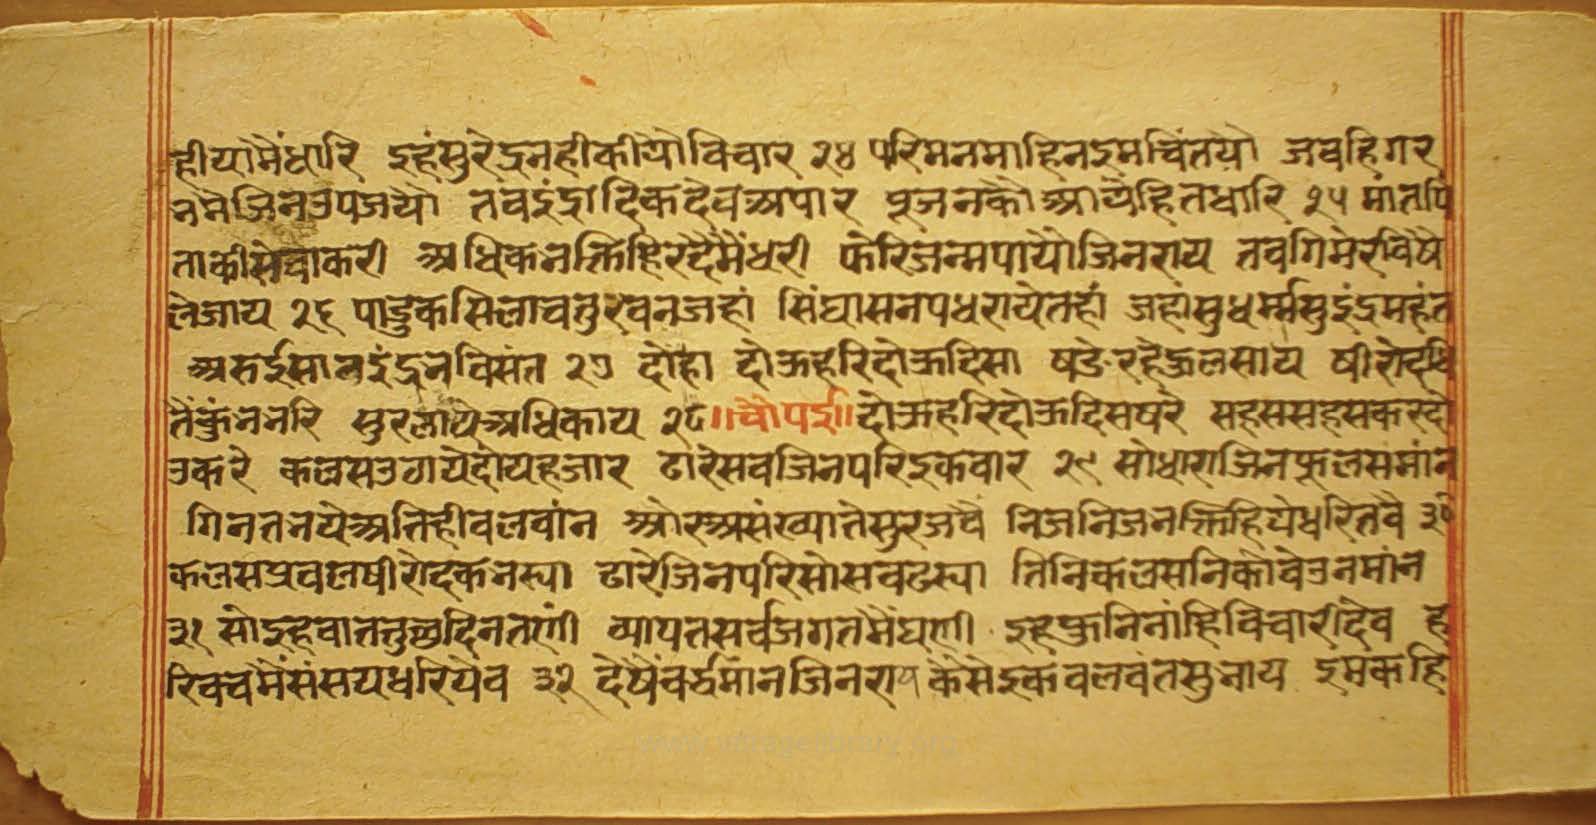 हीयामैंधारि इहंसुरेंद्रनहीकीयौविचार २४ परिमनमाहिनइमचिंतयौ जबहिगर
नमैजिनउपजयौ तबइंद्रादिकदेवअपार पूजनकौआयेहितधारि २५ मांतपि
ताकीसेवाकरी अधिकनक्तिहिरदैमैंधरी फेरिजन्मपायौजिनराय तबगिमेरविषै
लेजाय २६ पाडुकसिलाचतुरवनजहां सिंघासनपधरायेतहां जहांसुधर्म्मसुइंद्रमहंत
अरुईसानइंद्रनविसंत २७ दोहा दोऊहरिदोऊदिसा षडेरहेऊलसाय षीरोदधि
तैंकुंननरि सुरलायेअधिकाय २८॥चौपई॥दोऊहरिदोऊदिसषरे सहससहसकरदो
उकरे कलसउठायेदोयहजार ढारेसबजिनपरिइकबार २९ सोधाराजिनफूलसमांन
गिनतनयेअतिहीबलवांन औरअसंख्यातेसुरजबै निजनिजनक्तिहियेधरितबै ३०
कलसप्रबलषीरोदकनस्या ढारेजिनपरिसोसबढस्या तिनिकलसनिकोवेउनमांन
३१ सोइहबाततुछदिनतणी व्यापतसर्वजगतमैंघणी इहफुनिनांहिविचारीदेव ह
रिक्वमैंसंसयधरियेव ३२ देषैंवर्द्धमानजिनराय कैसेइकबलवंतसुनाय इमकहि
www.vitragelibrary.org